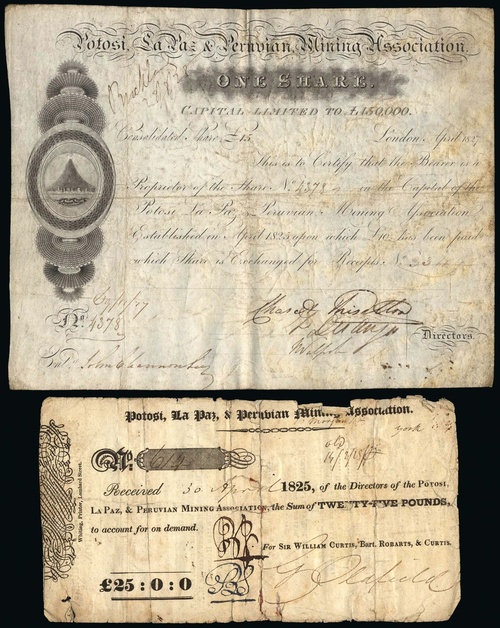 Potosi, La Paz & Peruvian Mining Association.
ONE SHARE.
CAPITAL LIMITED TO £450,000.
Consolidated Share £15 London April 1827
This is to Certify that the Bearer is a
Proprietor of the Share No. 4378 in the Capital of the
Potosi La Paz & Peruvian Mining Association
Established in April 1825 upon which £10 has been paid
which Share is Exchanged for Receipts No.
No. 4378
Directors.
Potosi, La Paz, & Peruvian Mining Association.
No.
Received 30 April 1825, of the Directors of the Potosi,
La Paz, & Peruvian Mining Association, the Sum of TWENTY-FIVE POUNDS,
to account for on demand.
For Sir William Curtis, Bart. Robarts, & Curtis.
£25:0:0
Whiting, Printer, Lombard Street.